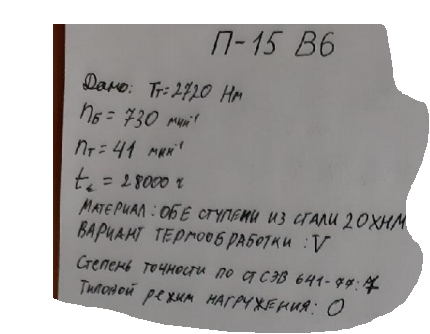 П-15 В6
Дано: Tт=2720 Нм
nБ = 730 мин⁻¹
nт = 41 мин⁻¹
t = 28000 ч
МАТЕРИАЛ: ОБЕ СТУПЕНИ ИЗ СТАЛИ 20ХНМ
ВАРИАНТ ТЕРМООБРАБОТКИ: V
Степень точности по СТ СЭВ 641-77: 7
Типовой режим НАГРУЖЕНИЯ: 0